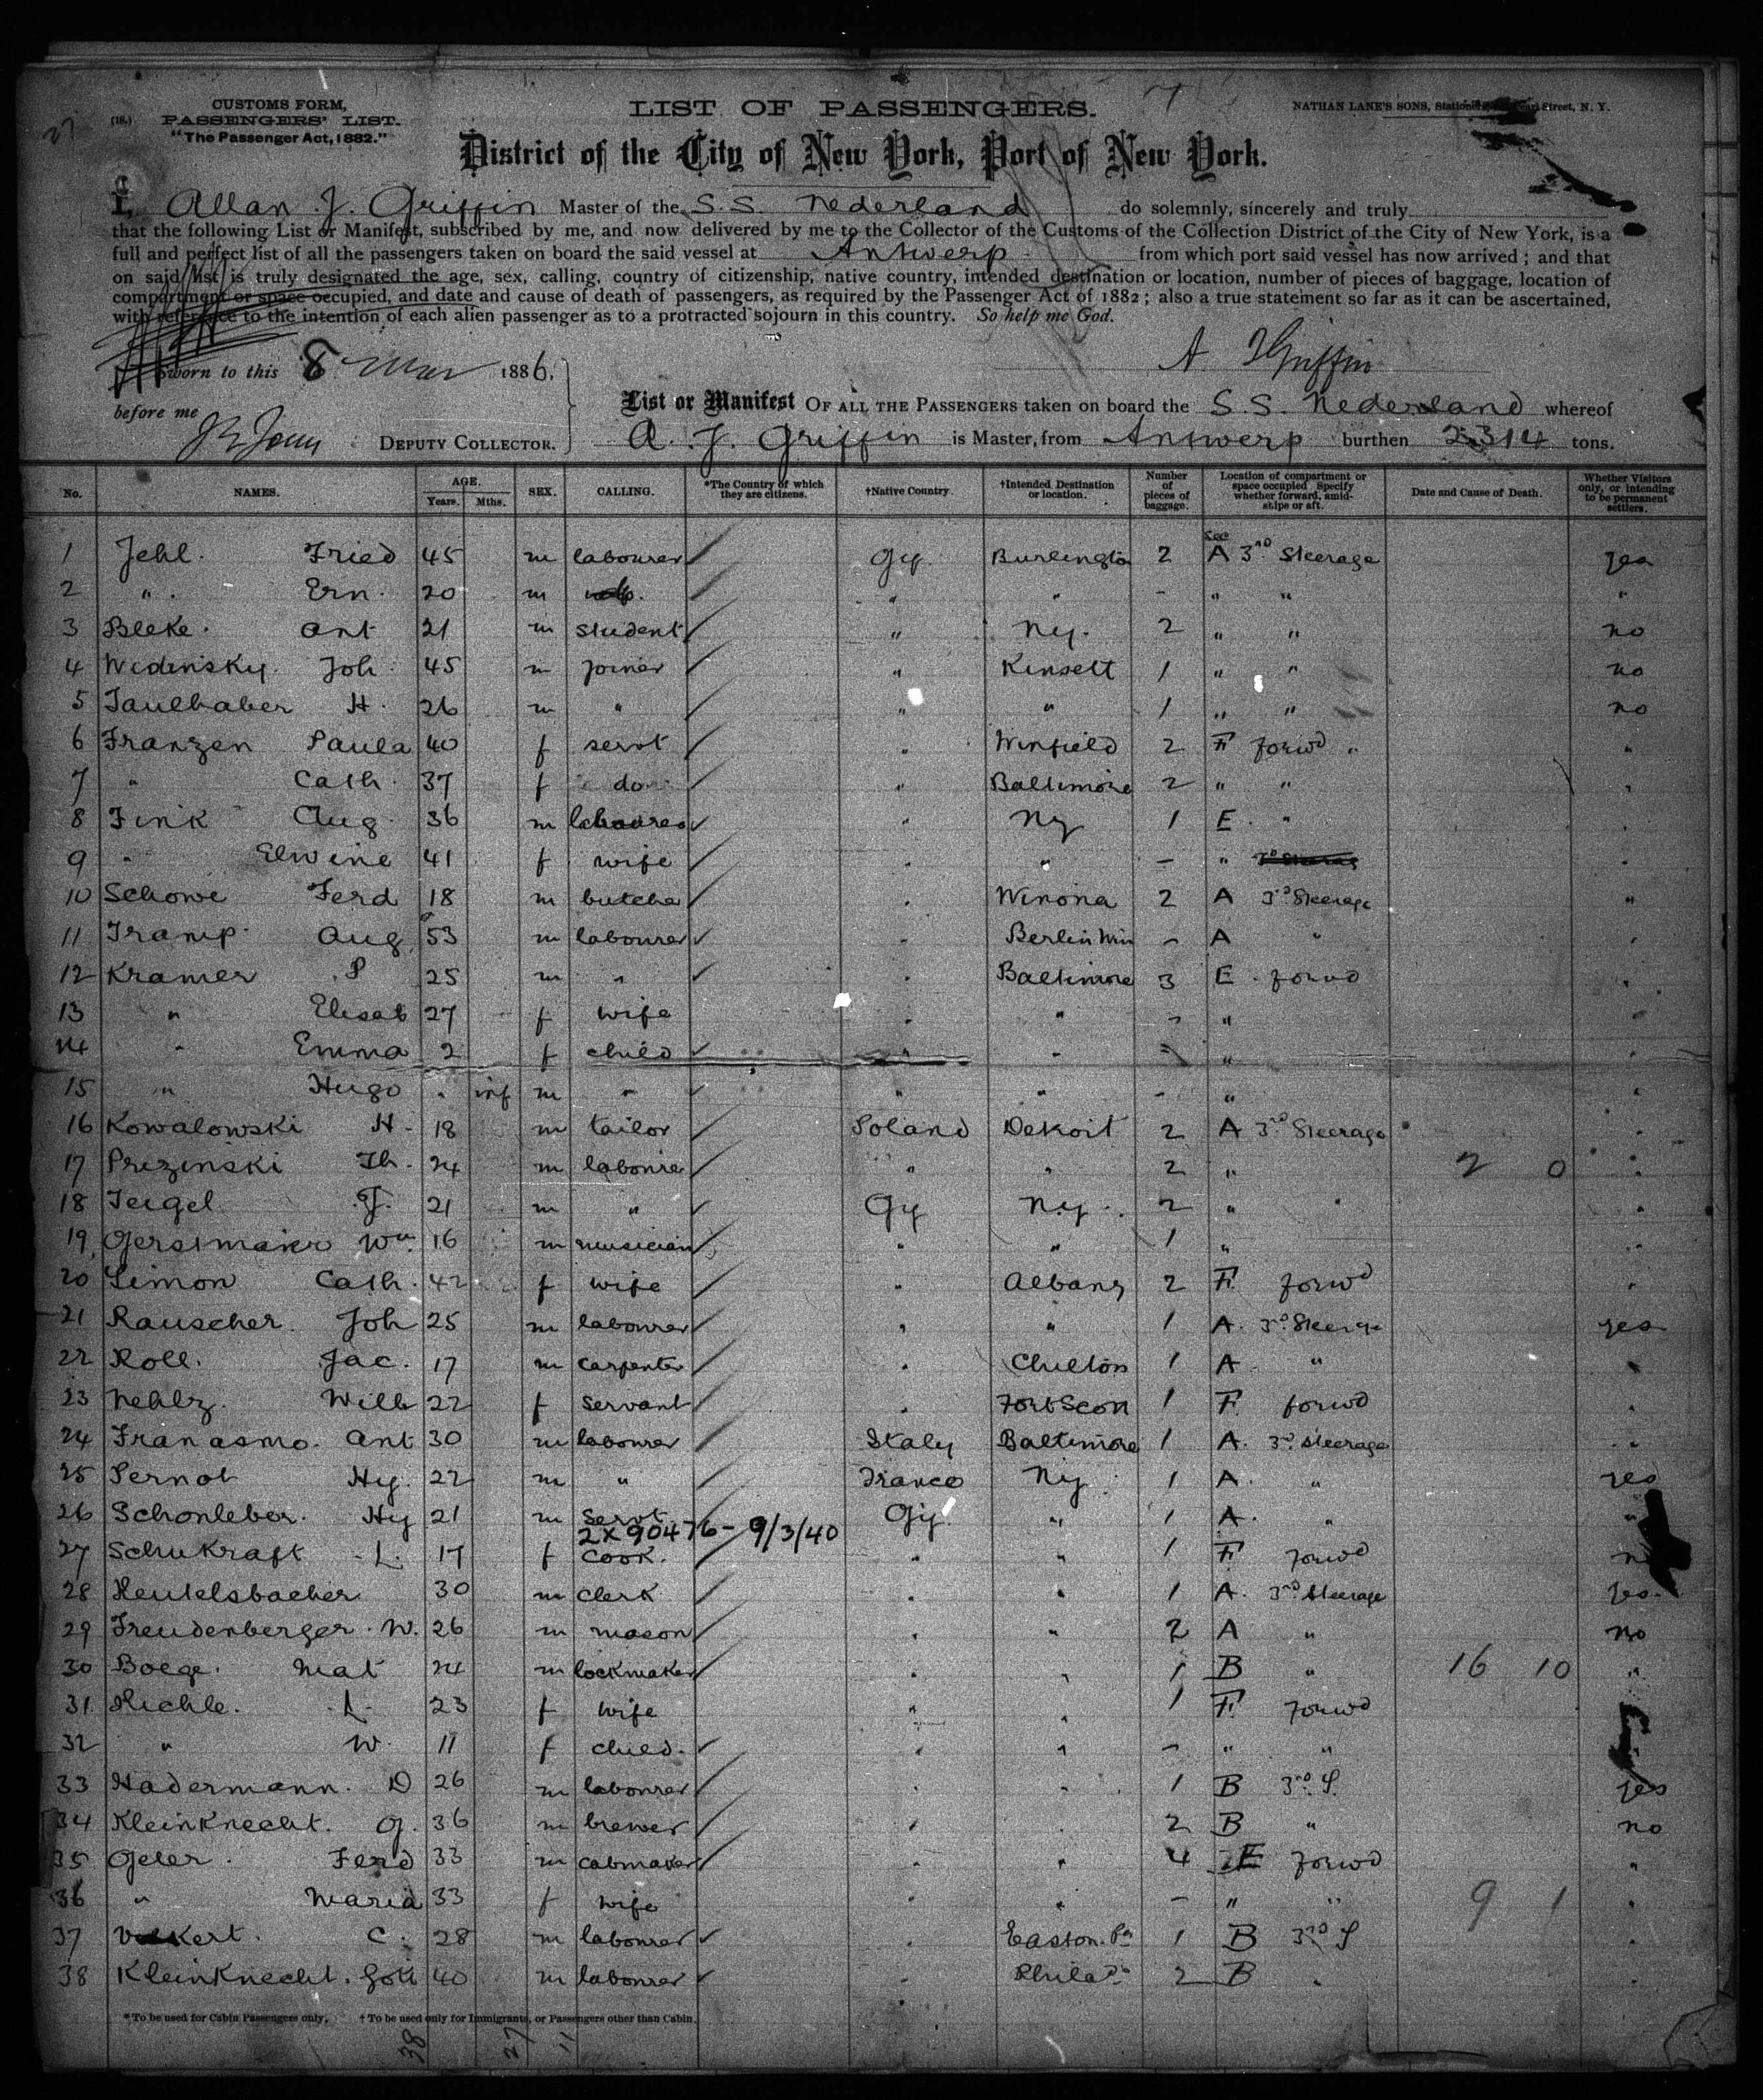 CUSTOMS FORM,
(18.) PASSENGERS' LIST.
"The Passenger Act, 1882."
LIST OF PASSENGERS.
NATHAN LANE'S SONS, Stationers, Pearl Street, N. Y.
District of the City of New York, Port of New York.
I, Allan J. Griffin Master of the S.S. Nederland do solemnly, sincerely and truly
that the following List or Manifest, subscribed by me, and now delivered by me to the Collector of the Customs of the Collection District of the City of New York, is a
full and perfect list of all the passengers taken on board the said vessel at Antwerp from which port said vessel has now arrived; and that
on said list is truly designated the age, sex, calling, country of citizenship, native country, intended destination or location, number of pieces of baggage, location of
compartment or space occupied, and date and cause of death of passengers, as required by the Passenger Act of 1882; also a true statement so far as it can be ascertained,
with reference to the intention of each alien passenger as to a protracted sojourn in this country. So help me God.
A. J Griffin
Sworn to this 8 Mar 1886,
before me
DEPUTY COLLECTOR.
List or Manifest OF ALL THE PASSENGERS taken on board the S.S. Nederland whereof
A. J. Griffin is Master, from Antwerp burthen 2314 tons.
No. NAMES. AGE. Years. Mths. SEX. CALLING. *The Country of which they are citizens. †Native Country. †Intended Destination or location. Number of pieces of baggage. Location of compartment or space occupied. Specify whether forward, amidships or aft. Date and Cause of Death. Whether Visitors only, or intending to be permanent settlers.
1 Jehl. Fried 45 m labourer Gy. Burlington 2 Sec A 3rd Steerage yes
2 " Ern. 20 m " " - " " "
3 Beeke. Ant 21 m student " Ny. 2 " " no
4 Widinsky. Joh. 45 m joiner " Kinsett 1 " " no
5 Faulhaber H. 26 m " " " 1 " " no
6 Franzen Paula 40 f servt " Winfield 2 F forwd " "
7 " Cath. 37 f do " Baltimore 2 " " "
8 Fink Aug. 36 m labourer " Ny 1 E. " "
9 " Elwine 41 f wife " " - " "
10 Schowe Ferd 18 m butcher " Winona 2 A 3rd Steerage "
11 Tramp Aug 53 m labourer " Berlin Win - A " "
12 Kramer P 25 m " " Baltimore 3 E. forwd "
13 " Elisab 27 f wife " " - " "
14 " Emma 2 f child " " - " "
15 " Hugo " inf m " " " - " "
16 Kowalowski H. 18 m tailor Poland Detroit 2 A 3rd Steerage "
17 Prezinski Th. 24 m labourer " " 2 " 2 0 "
18 Teigel J. 21 m " Gy Ny. 2 " " "
19 Gerstmaier Wm. 16 m musician " " 1 " "
20 Simon Cath. 42 f wife " Albany 2 F. forwd "
21 Rauscher. Joh 25 m labourer " " 1 A. 3rd Steerage yes
22 Roll. Jac. 17 m carpenter " Chilton 1 A. " "
23 Nehlz. Wilh 22 f servant " Fort Scott 1 F. forwd "
24 Franasmo. Ant 30 m labourer Italy Baltimore 1 A. 3rd Steerage "
25 Pernot Hy. 22 m " France Ny. 1 A. " yes
26 Schonleber. Hy 21 m Servt. Gy. " 1 A. " "
2x90476 - 9/3/40
27 Schukraft L. 17 f cook. " " 1 F. forwd
28 Heutelsbacher 30 m clerk " " 1 A. 3rd Steerage yes
29 Freudenberger. W. 26 m mason " " 2 A " no
30 Boege. Mat 24 m lockmaker " " 1 B " 16 10 "
31 Riehle. L. 23 f wife " " 1 F. forwd
32 " W. 11 f child. " " - " "
33 Hadermann. D 26 m labourer " " 1 B 3rd S. yes
34 Kleinknecht. G. 36 m brewer " " 2 B " no
35 Geler. Ferd 33 m cabmaker " " 4 E forwd "
36 " Maria 33 f wife " " - " " 9 1 "
37 C. 28 m labourer " Easton. Pa 1 B 3rd S "
38 Kleinknecht. Gott 40 m labourer " Phila Pa 2 B " "
*To be used for Cabin Passengers only. †To be used only for Immigrants, or Passengers other than Cabin.
38 27 11